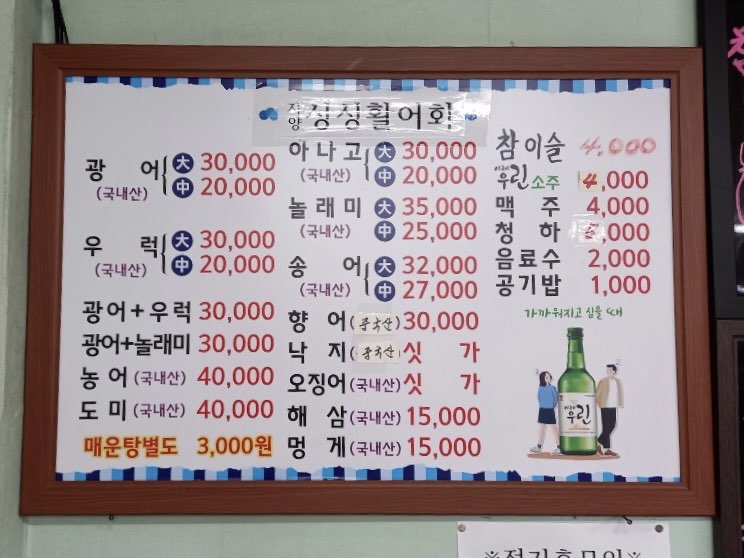 자양 싱싱활어회
광 어 大 30,000
(국내산) 中 20,000
우 럭 大 30,000
(국내산) 中 20,000
광어+우럭 30,000
광어+놀래미 30,000
농어 (국내산) 40,000
도미 (국내산) 40,000
매운탕별도 3,000원
아나고 大 30,000
(국내산) 中 20,000
놀래미 大 35,000
(국내산) 中 25,000
송 어 大 32,000
(국내산) 中 27,000
향 어 (중국산) 30,000
낙 지 (중국산) 싯 가
오징어 (국내산) 싯 가
해 삼 (국내산) 15,000
멍 게 (국내산) 15,000
참이슬 4,000
이제우린 소주 4,000
맥 주 4,000
청 하 ,000
음료수 2,000
공기밥 1,000
가까워지고 싶을 때
이제우린